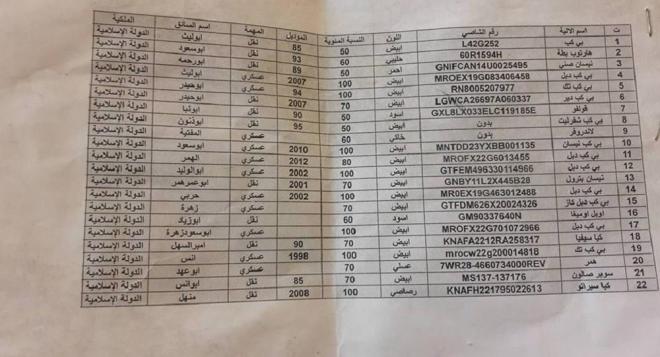 ت اسم الالية رقم الشاصي اللون النسبة المئوية المؤديل المهمة اسم السائق الملكية
1 بي كب L42G252 ابيض 50 85 نقل ابوليث الدولة الإسلامية
2 هارتوب بطة 60R1594H حليبي 60 93 نقل ابوسعود الدولة الإسلامية
3 نيسان صني GNIFCAN14U0025495 احمر 50 89 نقل ابورحمه الدولة الإسلامية
4 بي كب دبل MROEX19G083406458 ابيض 100 2007 عسكري ابوليث الدولة الإسلامية
5 بي كب تك RN8005207977 ابيض 100 94 عسكري ابوحيدر الدولة الإسلامية
6 بي كب دبر LGWCA26697A060337 ابيض 70 2007 نقل ابوحيدر الدولة الإسلامية
7 GXL8LX033ELC119185E اسود 50 90 نقل الدولة الإسلامية
8 بي كب شفرليت بدون ابيض 50 95 نقل ابوذنون الدولة الإسلامية
9 لاندروفر بدون خاكي 60 عسكري المفتية الدولة الإسلامية
10 بي كب نيسان MNTDD23YXBB001135 ابيض 100 2010 عسكري ابوسعود الدولة الإسلامية
11 بي كب دبل MROFX22G6013455 ابيض 80 2012 عسكري الهمر الدولة الإسلامية
12 بي كب GTFEM496330114966 ابيض 100 2002 عسكري ابوالوليد الدولة الإسلامية
13 نيسان بترول GNBY11L2X445B28 ابيض 70 2001 نقل ابوعمرهمر الدولة الإسلامية
14 بي كب دبل MR0EX19G463012488 ابيض 100 2002 عسكري حربي الدولة الإسلامية
15 بي كب دبل غاز GTFDM626X20024326 ابيض 70 عسكري زهرة الدولة الإسلامية
16 اوبل اوميغا GM90337640N اسود 60 نقل ابوزياد الدولة الإسلامية
17 بي كب دبل MROFX22G701072966 ابيض 100 عسكري ابوسعودزهرة الدولة الإسلامية
18 كيا سيفيا KNAFA2212RA258317 ابيض 70 90 نقل اميرالسهل الدولة الإسلامية
19 بي كب تك mrocw22g200014818 ابيض 100 1998 عسكري انس الدولة الإسلامية
20 همر 7WR28-4660734000REV عسلي 70 عسكري ابوعهد الدولة الإسلامية
21 سوبر صالون MS137-137176 ابيض 70 85 نقل ابوانس الدولة الإسلامية
22 كيا سيراتو KNAFH221795022613 رصاصي 100 2008 نقل منهل الدولة الإسلامية